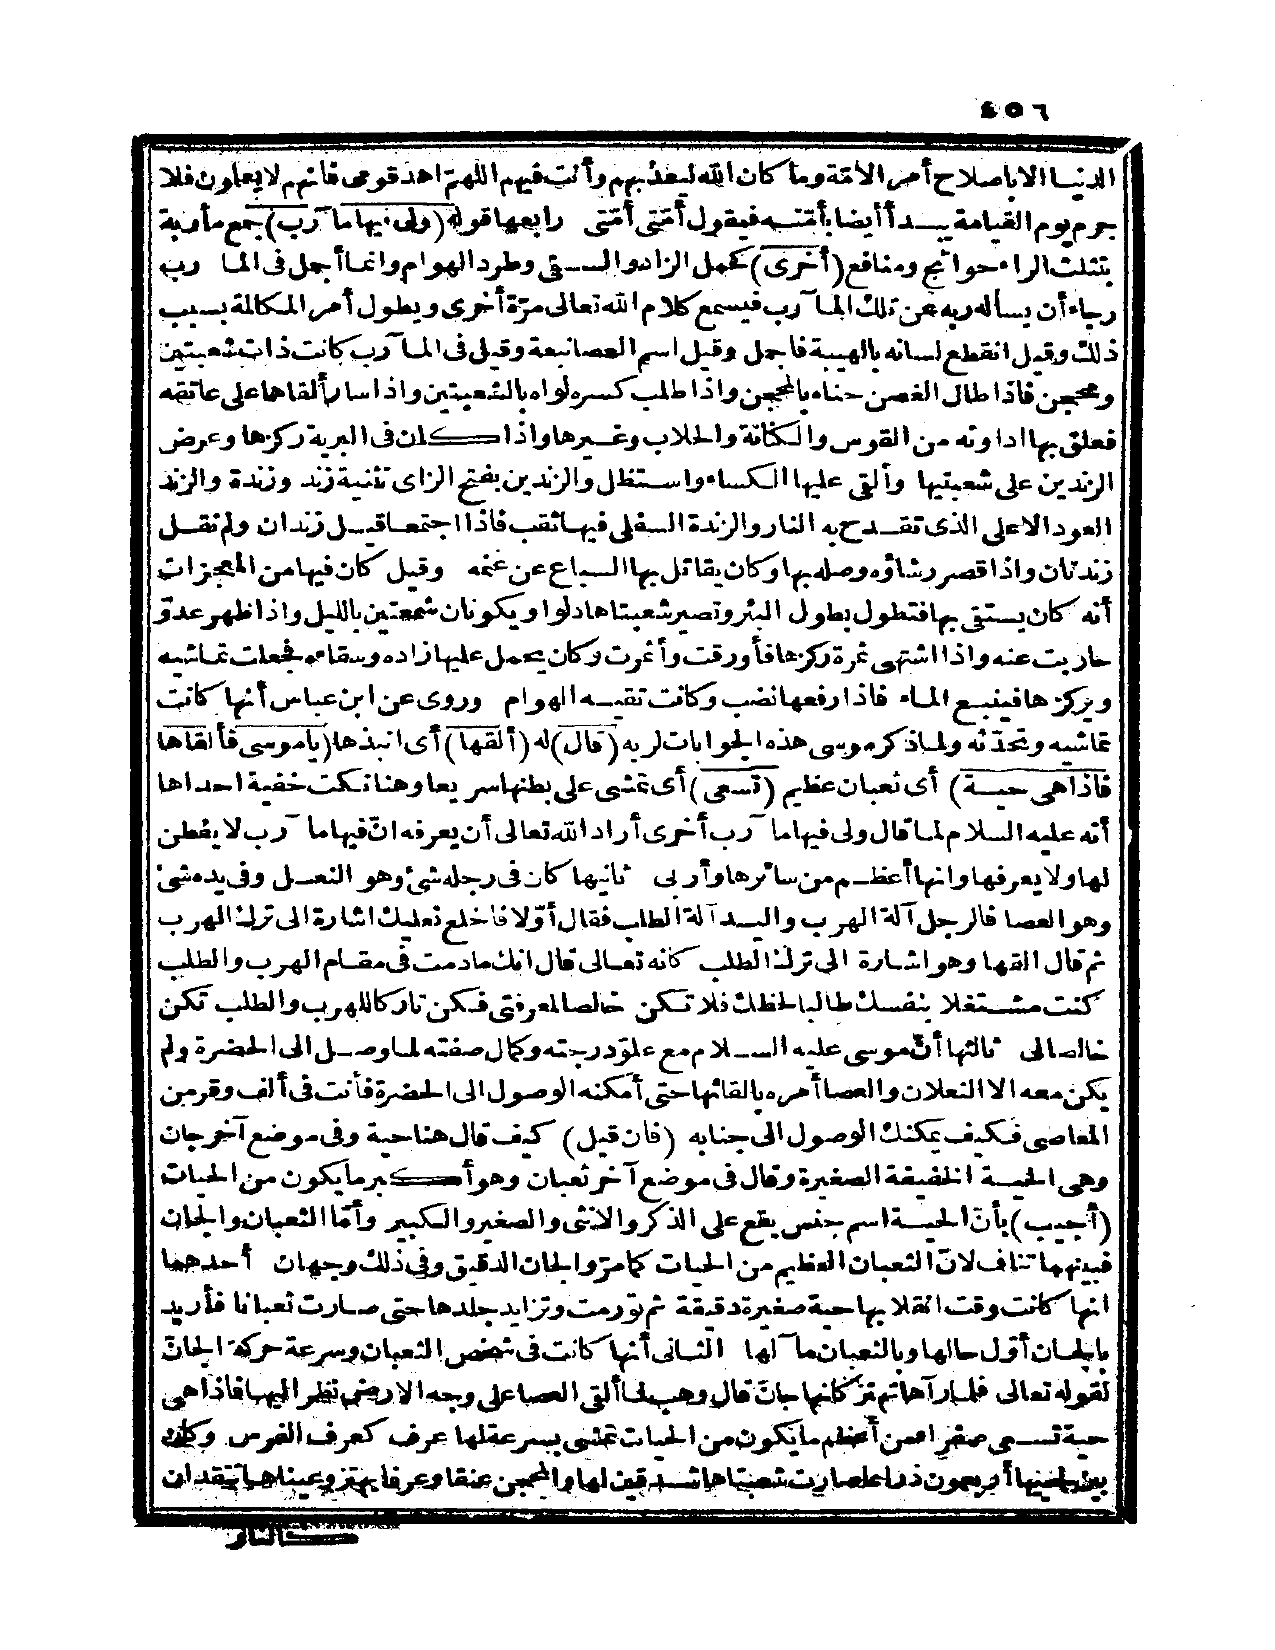 ٤٥٦
الدنيا الا باصلاح أمر الامّة وما كان الله ليعذبهم وأنت فيهم اللهمّ اهد قومى فانهم لا يعلمون فلا
جرم يوم القيامة يبدأ أيضا بأمّته فيقول أمّتى أمّتى رابعها قوله (ولى فيها مآرب) جمع مأربة
بتثليث الراء حوائج ومنافع (أخرى) كحمل الزاد والسقى وطرد الهوام وانما أجمل فى المآرب
رجاء أن يسأله ربه عن تلك المآرب فيسمع كلام الله تعالى مرّة أخرى ويطول أمر المكالمة بسبب
ذلك وقيل انقطع لسانه بالهيبة فأجمل وقيل اسم العصا نبعة وقيل فى المآرب كانت ذات شعبتين
ومحجن فاذا طال الغصن حناه بالمحجن واذا طلب كسره لواه بالشعبتين واذا سار ألقاها على عاتقه
فعلق بها اداوته من القوس والكنانة والحلاب وغيرها واذا كان فى البرية ركزها وعرض
الزندين على شعبتيها وألقى عليها الكساء واستظل والزندين بفتح الزاى تثنية زند وزندة والزند
العود الاعلى الذى تقدح به النار والزندة السفلى فيها ثقب فاذا اجتمعا قيل زندان ولم نقل
زندتان واذا قصر رشاؤه وصله بها وكان يقاتل بها السباع عن غنمه وقيل كان فيها من المعجزات
أنه كان يستقى بها فتطول بطول البئر وتصير شعبتاها دلوا ويكونان شمعتين بالليل واذا ظهر عدوّ
حاربت عنه واذا اشتهى ثمرة ركزها فأورقت وأثمرت وكان يحمل عليها زاده وسقاءه فجعلت تماشيه
ويركزها فينبع الماء فاذا رفعها نضب وكانت تقيه الهوام وروى عن ابن عباس أنها كانت
تماشيه وتحدّثه ولما ذكر موسى هذه الجوابات لربه (قال) له (ألقها) أى انبذها (يا موسى فألقاها
فاذا هى حية) أى ثعبان عظيم (تسعى) أى تمشى على بطنها سريعا وهنا نكت خفية احداها
أنه عليه السلام لما قال ولى فيها مآرب أخرى أراد الله تعالى أن يعرفه انّ فيها مآرب لا يفطن
لها ولا يعرفها وانها أعظم من سائرها وأربى ثانيها كان فى رجله شئ وهو النعل وفى يده شئ
وهو العصا فالرجل آلة الهرب واليد آلة الطلب فقال أوّلا فاخلع نعليك اشارة الى ترك الهرب
ثم قال القها وهو اشارة الى ترك الطلب كانه تعالى قال انك ما دمت فى مقام الهرب والطلب
كنت مشتغلا بنفسك طالبا لحظك فلا تكن خالصا لمعرفتى فكن تاركا للهرب والطلب تكن
خالصالى ثالثها أنّ موسى عليه السلام مع علوّ درجته وكمال صفته لما وصل الى الحضرة ولم
يكن معه الا النعلان والعصا أمره بالقائها حتى أمكنه الوصول الى الحضرة فأنت فى ألف وقر من
المعاصى فكيف يمكنك الوصول الى جنابه (فان قيل) كيف قال هنا حية وفى موضع آخر جان
وهى الحية الخفيفة الصغيرة وقال فى موضع آخر ثعبان وهو أكبر ما يكون من الحيات
(أجيب) بأنّ الحية اسم جنس يقع على الذكر والانثى والصغير والكبير وأمّا الثعبان والجان
فبينهما تناف لانّ الثعبان العظيم من الحيات كما مرّ والجان الدقيق وفى ذلك وجهان أحدهما
انها كانت وقت انقلابها حية صغيرة دقيقة ثم تورمت وتزايد جلدها حتى صارت ثعبانا فأريد
بالجان أول حالها وبالثعبان مآلها الثانى أنها كانت فى شخص الثعبان وسرعة حركة الجانّ
لقوله تعالى فلما رآها تهتز كانها جانّ قال وهب لما ألقى العصا على وجه الارض نظر اليها فاذا هى
حية تسعى صفراء من أعظم ما يكون من الحيات تمشى بسرعة لها عرف كعرف الفرس وكان
بين لحييها أربعون ذراعا صارت شعبتاها شدقين لها والمحجن عنقا وعرفا يهتز وعيناها تتقدان
كالنار